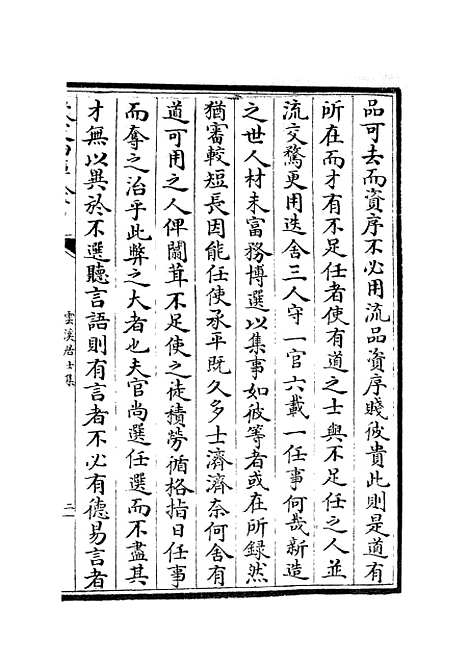 品可去而資序不必用流品資序賤彼貴此則是道有
所在而才有不足任者使有道之士與不足任之人並
流交騖更用迭舍三人守一官六載一任事何哉新造
之世人材未富務博選以集事如彼等者或在所録然
猶審較短長因能任使承平既久多士濟濟奈何舍有
道可用之人俾闒茸不足使之徒積勞循格指日任事
而奪之治乎此弊之大者也夫官尚選任選而不盡其
才無以異於不選聽言語則有言者不必有德易言者
雲溪居士集